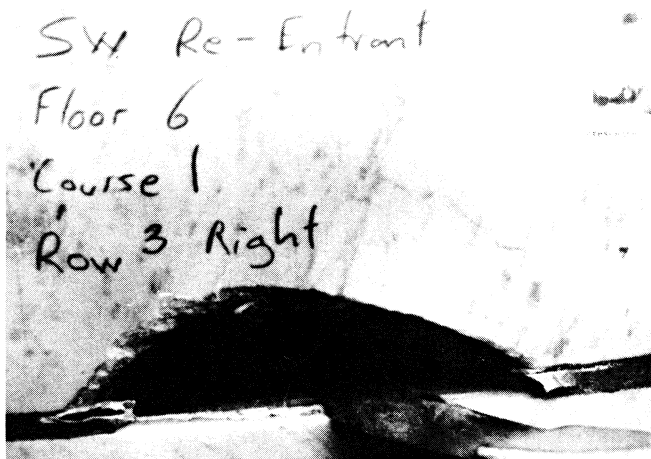 SW Re-Entrant
Floor 6
Course 1
Row 3 Right